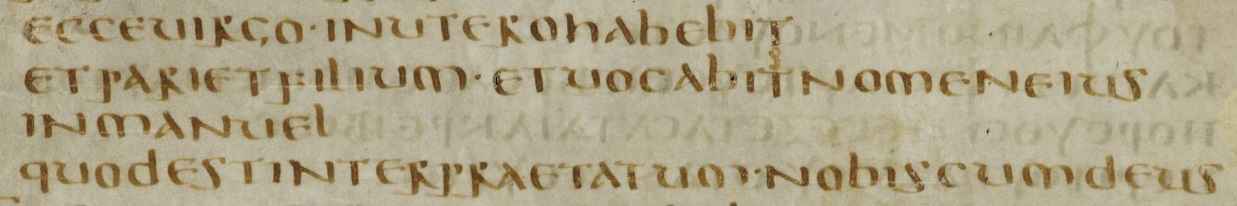 ECCE UIRGO · IN UTERO hAbEbIT
ET PARIET FILIUM · ET UOCAbIT NOMEN EIUS
INMANUEL
quod EST INTERPRAETATUM · NObISCUM dEUS